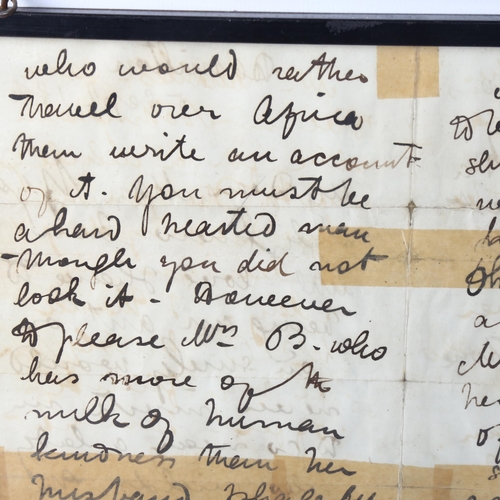 who would rather
travel over Africa
than write an account
of it. You must be
a hard hearted man
though you did not
look it - However
to please Mrs B. who
has more of the
milk of human
kindness than her
husband